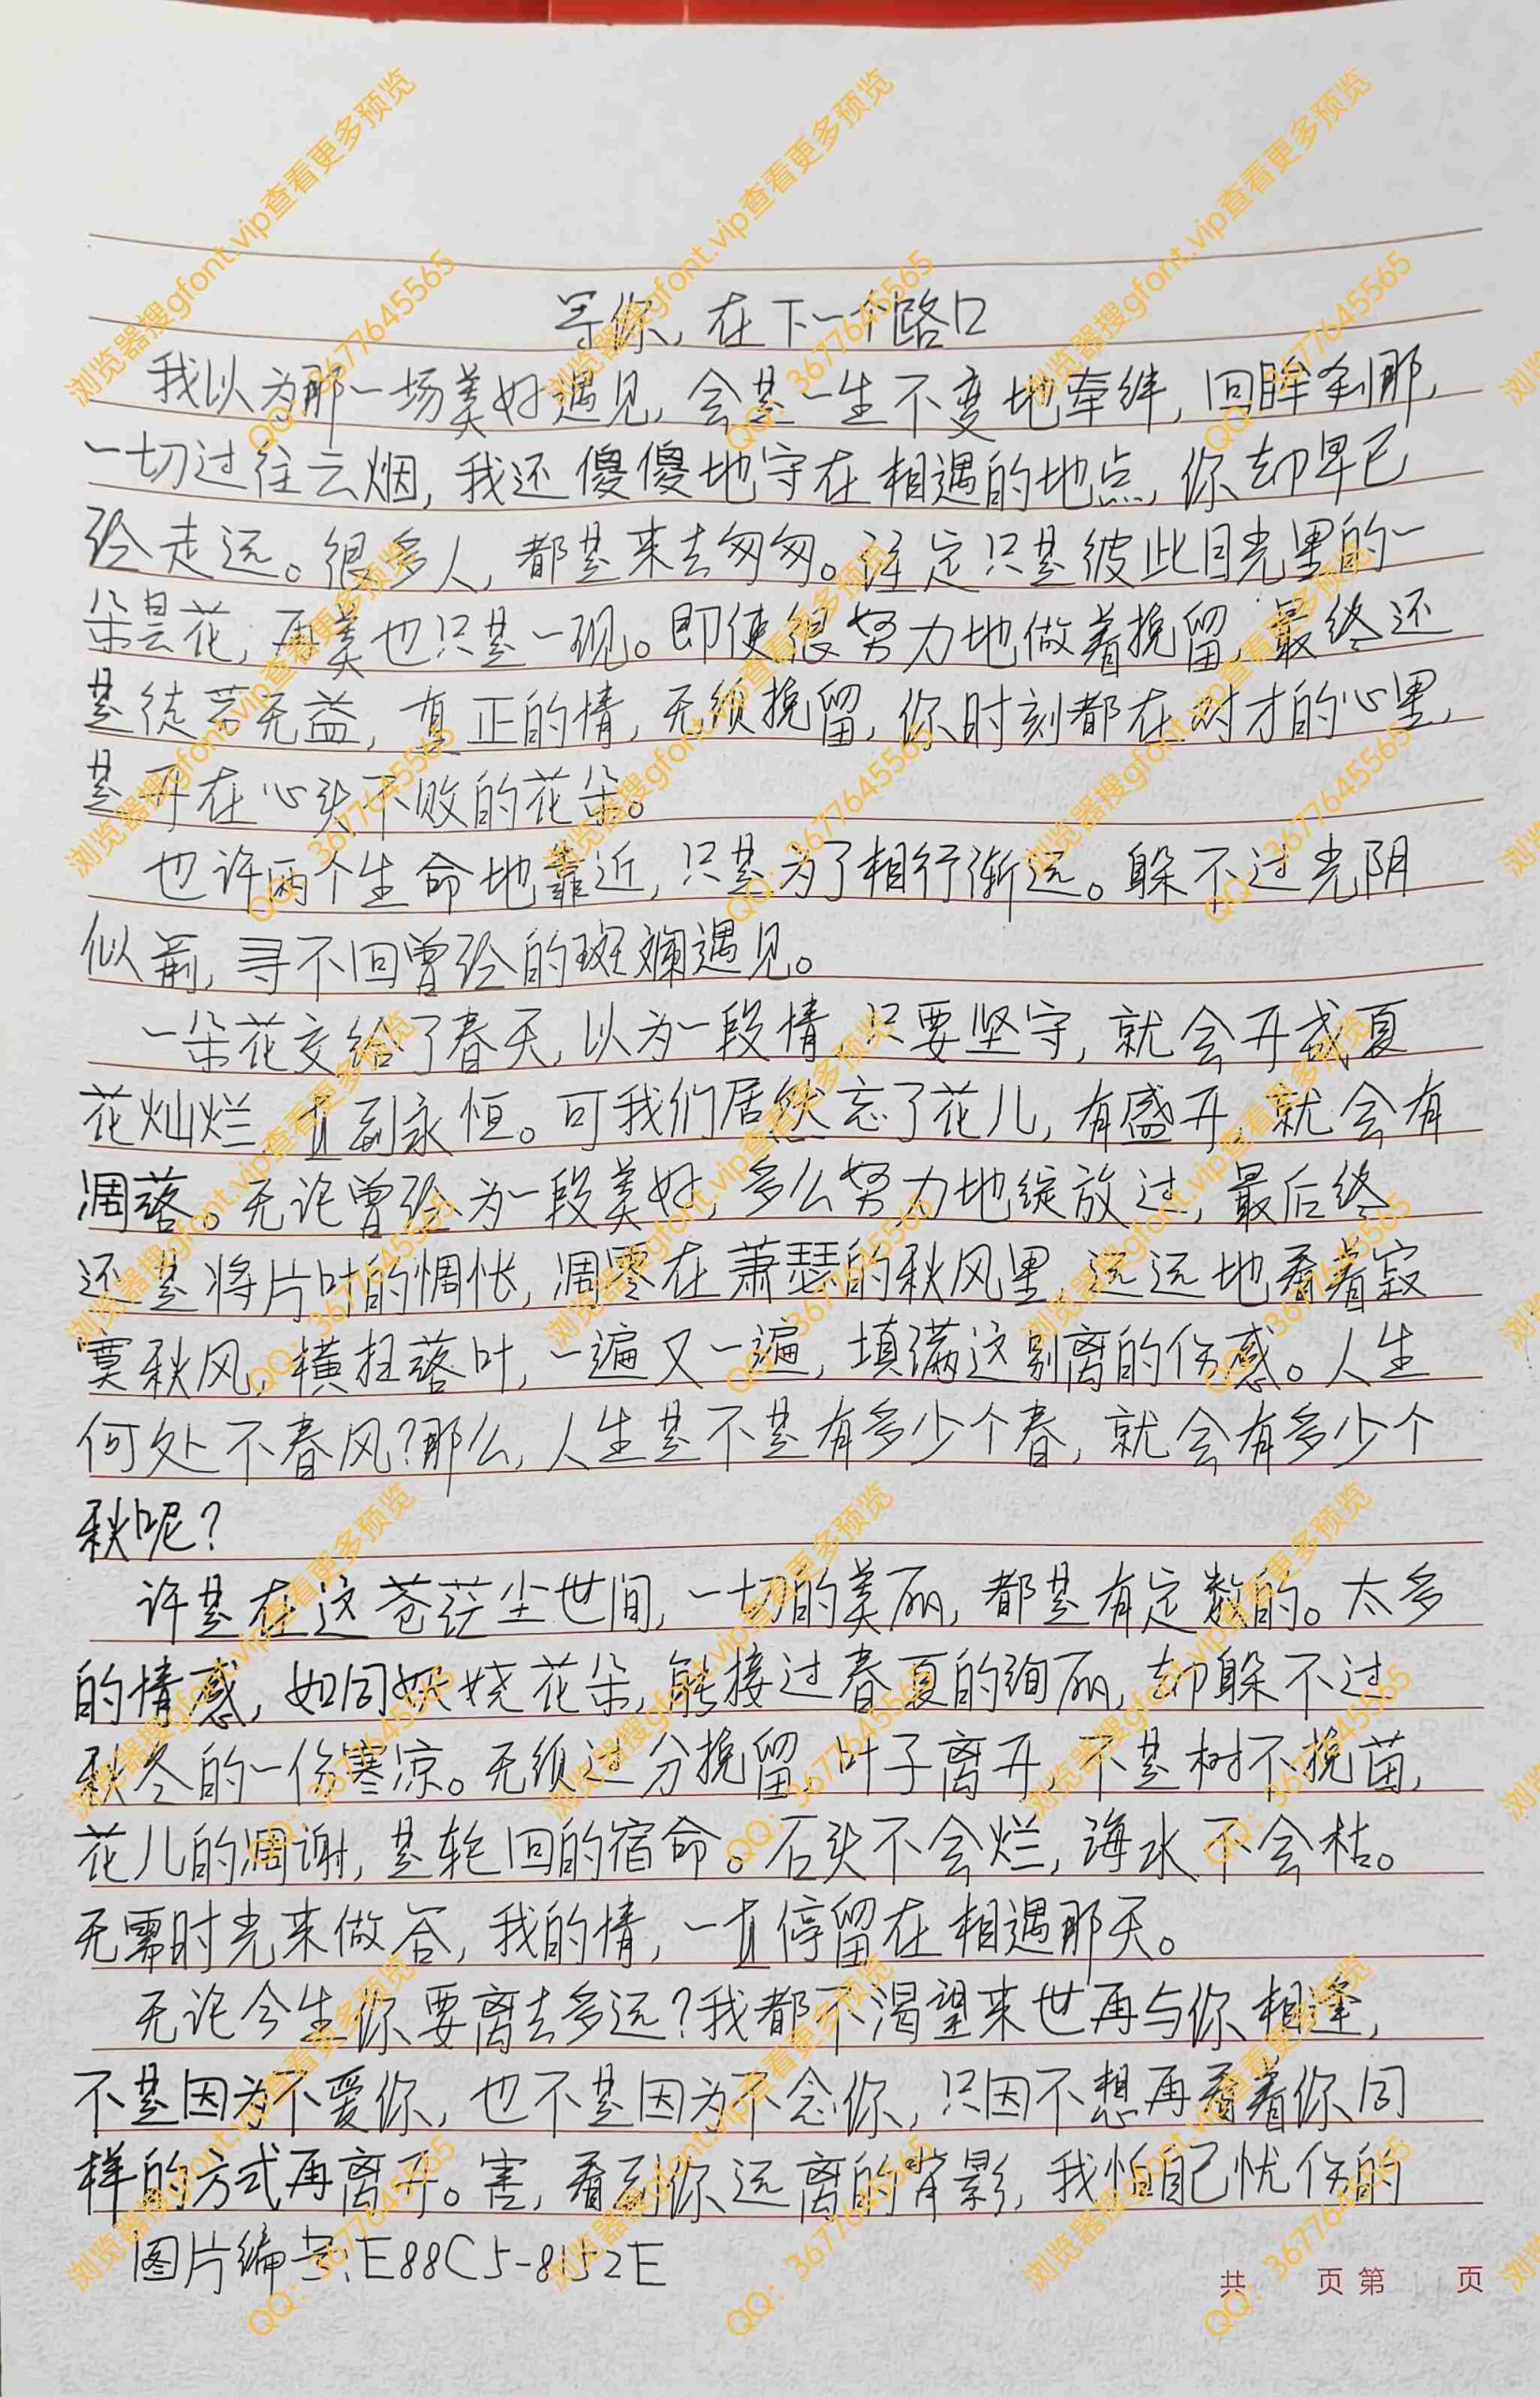 等你,在下一个路口
我以为那一场美好遇见,会是一生不变地牵绊,回眸刹那,
一切过往云烟,我还傻傻地守在相遇的地点,你却早已
经走远。很多人,都是来去匆匆。注定只是彼此目光里的一
朵昙花,再美也只是一现。即使很努力地做着挽留,最终还
是徒劳无益,真正的情,无须挽留,你时刻都在对方的心里,
是开在心头不败的花朵。
也许两个生命地靠近,只是为了相行渐远。躲不过光阴
似箭,寻不回曾经的斑斓遇见。
一朵花交给了春天,以为一段情,只要坚守,就会开成夏
花灿烂,直到永恒。可我们居然忘了花儿,有盛开,就会有
凋落。无论曾经为一段美好,多么努力地绽放过,最后终
还是将片时的惆怅,凋零在萧瑟的秋风里,远远地看着寂
寞秋风,横扫落叶,一遍又一遍,填满这别离的伤感。人生
何处不春风?那么,人生是不是有多少个春,就会有多少个
秋呢?
许是在这苍茫尘世间,一切的美丽,都是有定数的。太多
的情感,如同妖娆花朵,能接过春夏的绚丽,却躲不过
秋冬的一伤寒凉。无须过分挽留,叶子离开,不是树不挽留,
花儿的凋谢,是轮回的宿命。石头不会烂,海水不会枯。
无需时光来做答,我的情,一直停留在相遇那天。
无论今生你要离去多远?我都不渴望来世再与你相逢,
不是因为不爱你,也不是因为不念你,只因不想再看着你同
样的方式再离开。害,看到你远离的背影,我怕自己忧伤的
图片编号:E88C5-8152E
共 页 第 页
浏览器搜gfont.vip查看更多预览
QQ:3677645565